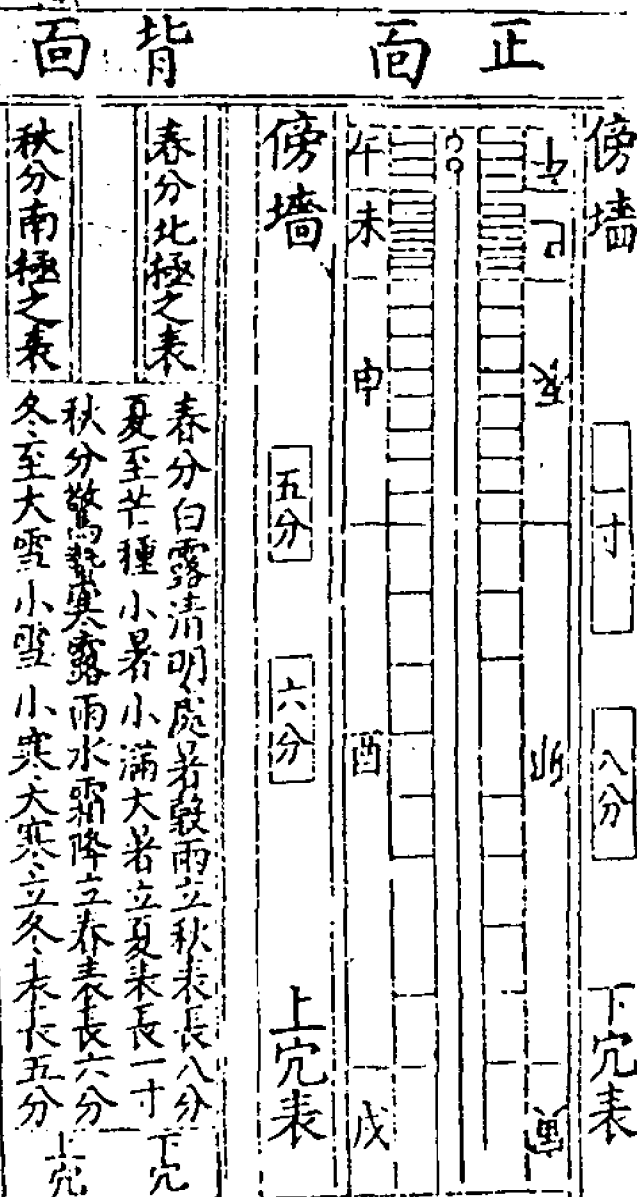 正面
背面
傍墻
一寸
八分
下宂表
午
巳
辰
卯
寅
午
未
申
酉
戌
傍墻
五分
六分
上宂表
春分北極之表
秋分南極之表
春分白露清明處暑穀雨立秋表長八分
夏至芒種小暑小滿大暑立夏表長一寸
秋分驚蟄寒露雨水霜降立春表長六分
冬至大雪小雪小寒大寒立冬表長五分
下宂
上宂